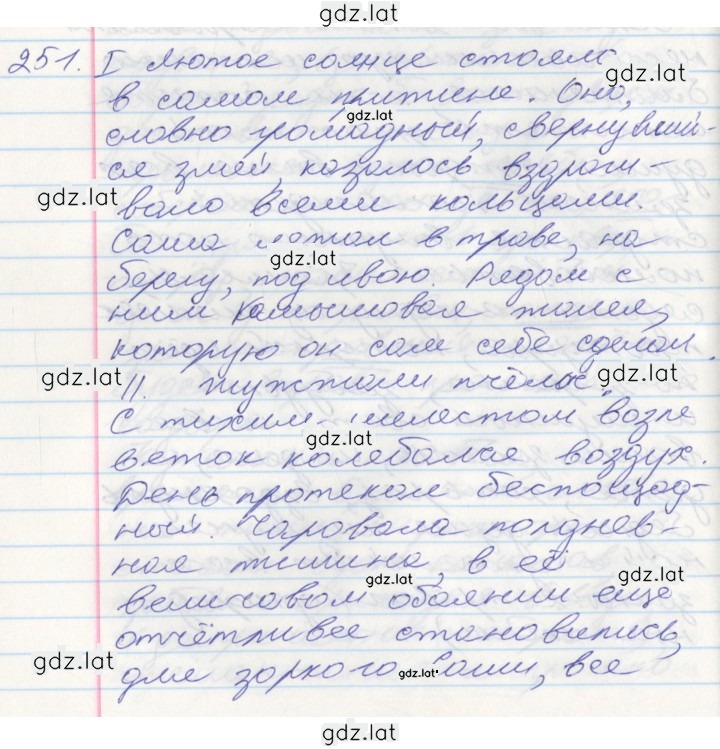 gdz.lat
251. I Лютое солнце стояло
gdz.lat
в самом притине. Оно,
gdz.lat
словно громадный, свернувший-
ся змей, казалось вздраги-
gdz.lat
вало всеми кольцами.
Саша лежал в траве, на
gdz.lat
берегу, под ивою. Рядом с
ним камышовая жалея,
которую он сам себе сделал.
gdz.lat
gdz.lat
II. Жужжали пчёлы.
С тихим шелестом возле
gdz.lat
веток колебался воздух.
День протекал беспощад-
ный. Чаровала полднев-
ная тишина, в её
gdz.lat
gdz.lat
величавом обаянии ещё
отчётливее становились,
gdz.lat
для зоркого Саши, все
gdz.lat
gdz.lat